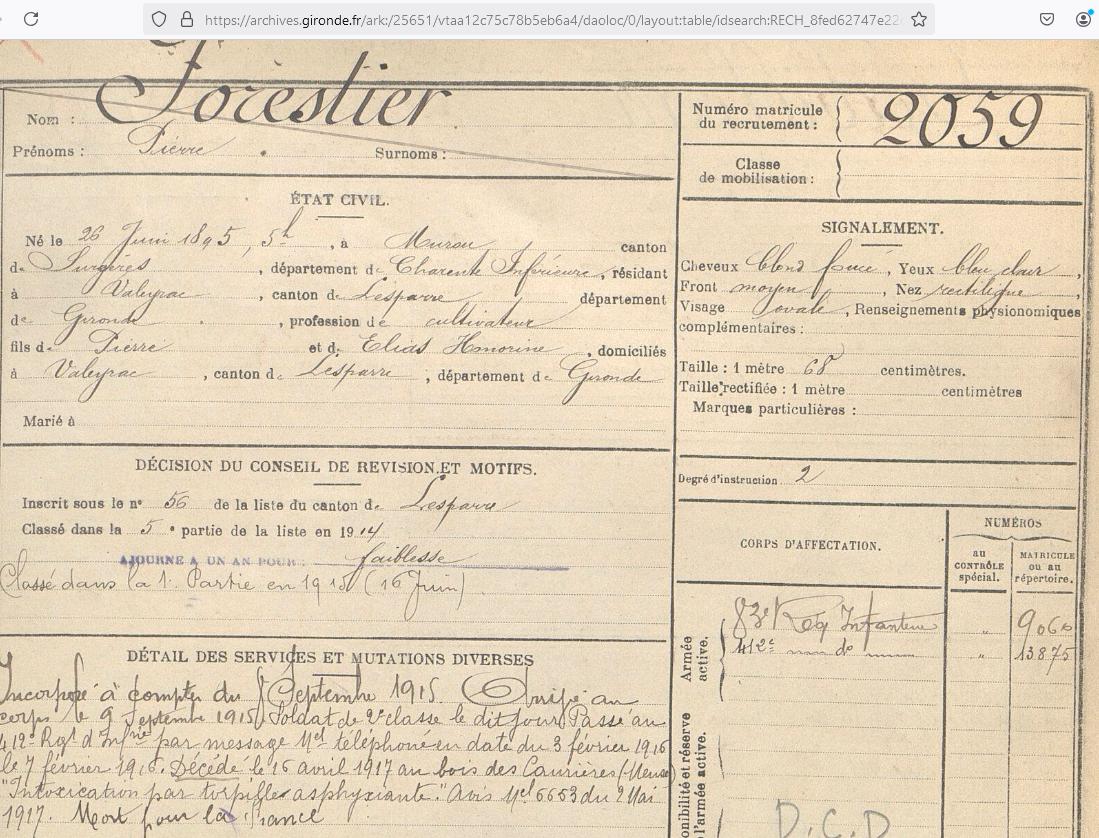 https://archives.gironde.fr/ark:/25651/vtaa12c75c78b5eb6a4/daoloc/0/layout:table/idsearch:RECH_8fed62747e22
Nom : Forestier
Prénoms : Pierre Surnoms :
Numéro matricule du recrutement : 2059
Classe de mobilisation :
ÉTAT CIVIL.
Né le 26 Juin 1895, 5h, à canton
de Surgères, département de Charente Inférieure, résidant
à Valeyrac, canton de Lesparre département
de Gironde, profession de cultivateur
fils de Pierre et de Elias Honorine, domiciliés
à Valeyrac, canton de Lesparre, département de Gironde
Marié à
SIGNALEMENT.
Cheveux blond foncé, Yeux bleu clair,
Front moyen, Nez rectiligne,
Visage ovale, Renseignements physionomiques
complémentaires :
Taille : 1 mètre 68 centimètres.
Taille rectifiée : 1 mètre centimètres
Marques particulières :
Degré d'instruction 2
DÉCISION DU CONSEIL DE REVISION ET MOTIFS.
Inscrit sous le n° 56 de la liste du canton de Lesparre
Classé dans la 5e partie de la liste en 1914
AJOURNÉ A UN AN POUR : faiblesse
Classé dans la 1e Partie en 1915 (16 Juin)
CORPS D'AFFECTATION.
NUMÉROS
au CONTRÔLE spécial.
MATRICULE ou au répertoire.
Armée active.
83e Reg Infanterie " 9060
412e — do — " 13875
DÉTAIL DES SERVICES ET MUTATIONS DIVERSES
Incorporé à compter du 8 Septembre 1915. Arrivé au
corps le 9 Septembre 1915, Soldat de 2e classe le dit jour. Passé au
412e Rgt d'Infrie par message Mel téléphoné en date du 3 février 1916
le 7 février 1916. Décédé le 16 avril 1917 au bois des Caurières (Meuse)
"Intoxication par torpilles asphyxiante." Avis Mel 6653 du 2 Mai
1917. Mort pour la France
onibilité et réserve
l'armée active.
D.C.D